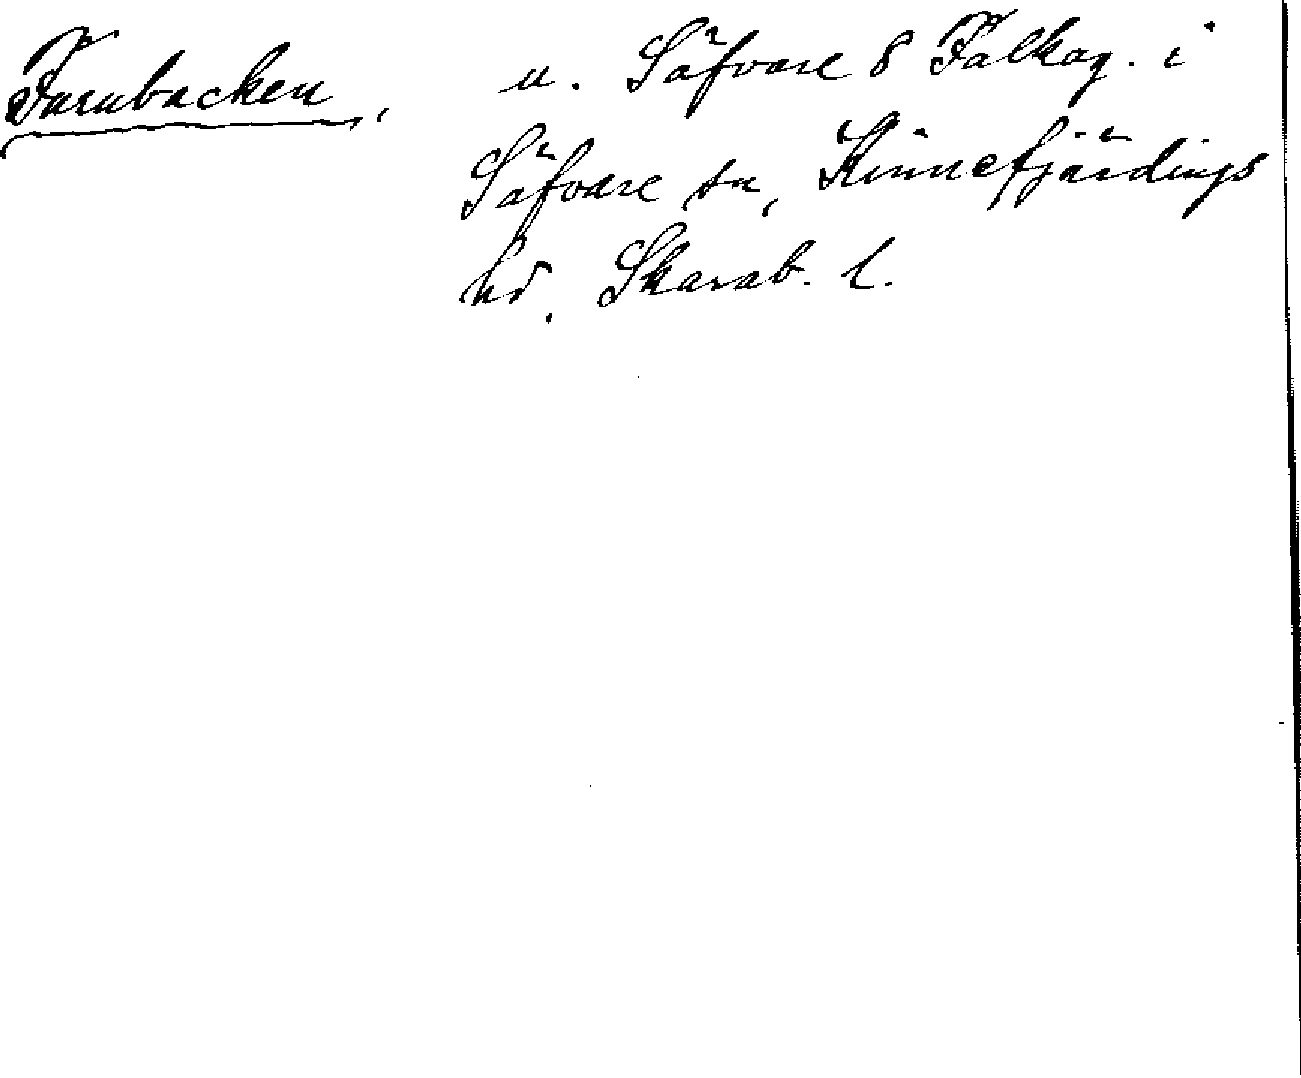 Farnbacken, u. Säfvare 8 Falkag. i
Säfvare sn, Kinnefjärdings
hd. Skarab. l.